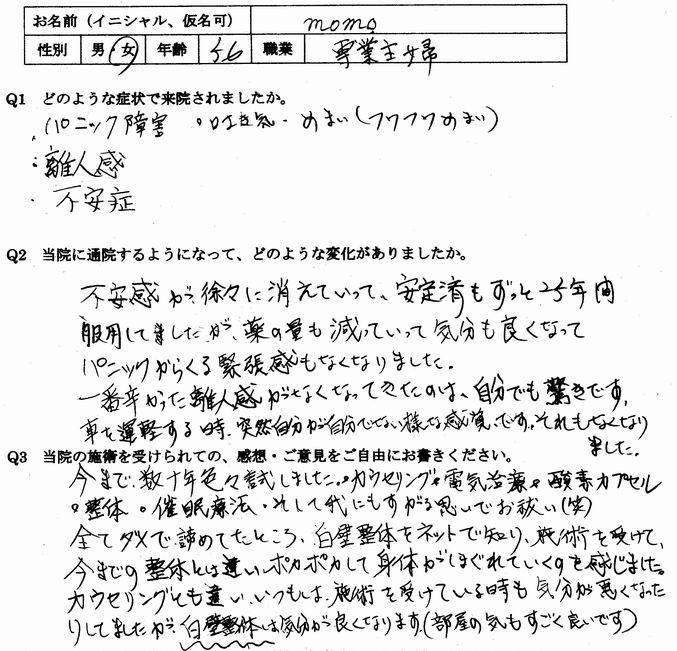 お名前（イニシャル、仮名可） momo
性別 男・女 年齢 56 職業 専業主婦
Q1 どのような症状で来院されましたか。
・パニック障害 ・吐き気・めまい(フワフワめまい)
・離人感
・不安症
Q2 当院に通院するようになって、どのような変化がありましたか。
不安感が、徐々に消えていって、安定済もずっと25年間
服用してましたが、薬の量も減っていって気分も良くなって
パニックからくる緊張感もなくなりました。
一番辛かった離人感がなくなってきたのは、自分でも驚きです。
車を運転する時、突然自分が自分でない様な感覚です。それもなくなり
ました。
Q3 当院の施術を受けられての、感想・ご意見をご自由にお書きください。
今まで、数十年色々試しました。・カウセリング・電気治療・酸素カプセル
・整体・催眠療法・そして我にもすがる思いでお祓い(笑)
全てダメで諦めてたところ、白壁整体をネットで知り、施術を受けて、
今までの整体とは違い、ポカポカして身体がほぐれていくのを感じました。
カウセリングとも違い、いつもは、施術を受けている時も気分が悪くなった
りしてましたが、白壁整体は気分が良くなります。(部屋の気もすごく良いです)